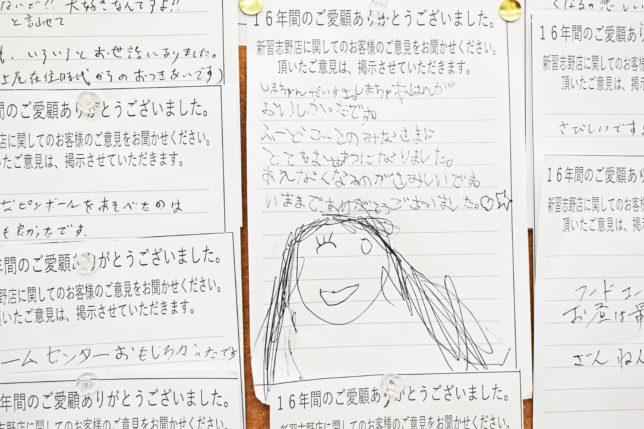 ないで!! 大好きなんですよ!!
と言わせて
いろいろとお世話になりました。
在住時代からのおつきあいです)
間のご愛顧ありがとうございました。
店に関してのお客様のご意見をお聞かせください。
いたご意見は、掲示させていただきます。
なピンボールをあそべたのは
も良かったです。
年間のご愛顧ありがとうございました。
野店に関してのお客様のご意見をお聞かせください。
頂いたご意見は、掲示させていただきます。
ームセンターおもしろかったです
年間のご愛顧ありがとうございました。
野店に関してのお客様のご意見をお聞かせください。
16年間のご愛顧ありがとうございました。
新習志野店に関してのお客様のご意見をお聞かせください。
頂いたご意見は、掲示させていただきます。
しまちゃんだいすき。しまちゃ
おいしかったです。
ふーどこーとのみなさまに
とてもおせわになりました。
あえなくなるのがさみしいです。
いままでありがとうございました。♡☆
16年間のご愛顧ありがとうございました。
新習志野店に関してのお客様のご意見をお聞かせください。
16年間のご愛顧
新習志野店に関しての
頂いたご意見
さびしいです
16年間のご愛顧
新習志野店に関しての
頂いたご意見は
フードコー
お昼は
ざんねん